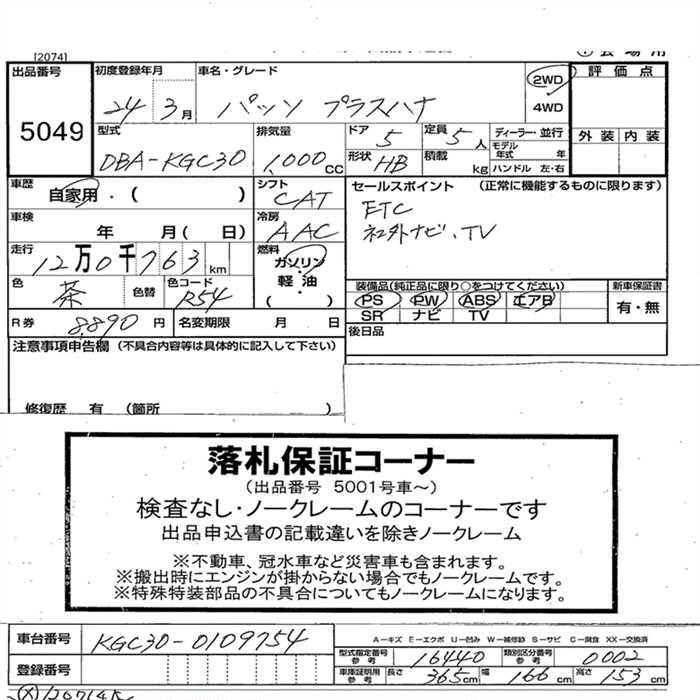 [2074]
出品番号
5049
初度登録年月
24 3月
車名・グレード
パッソ プラスハナ
2WD
4WD
評価点
外装 内装
型式
DBA-KGC30
排気量
1,000CC
ドア 5
形状 HB
定員 5人
積載 kg
ディーラー・並行
モデル年式 年
ハンドル 左・右
車歴
自家用・( )
シフト
CAT
セールスポイント (正常に機能するものに限ります)
ETC
社外ナビ、TV
車検
年 月(日)
冷房
AAC
走行
12万0千763km
燃料
ガソリン・軽油
( )
色
茶
色替
色コード
R54
装備品(純正品に限り○をつけてください)
PS PW ABS エアB
SR ナビ TV
新車保証書
有・無
R券 8,890円
名変期限 月 日
後日品
注意事項申告欄 (不具合内容等は具体的に記入して下さい)
修復歴 有 (箇所 )
落札保証コーナー
(出品番号 5001号車〜)
検査なし・ノークレームのコーナーです
出品申込書の記載違いを除きノークレーム
※不動車、冠水車など災害車も含まれます。
※搬出時にエンジンが掛からない場合でもノークレームです。
※特殊特装部品の不具合についてもノークレームになります。
車台番号 KGC30-0109754
A－キズ E－エクボ U－凹み W－補修跡 S－サビ C－腐食 XX－交換済
登録番号
型式指定番号 参考 16440
類別区分番号 参考 0002
車庫証明用 参考 長さ 365cm 幅 166cm 高さ 153cm